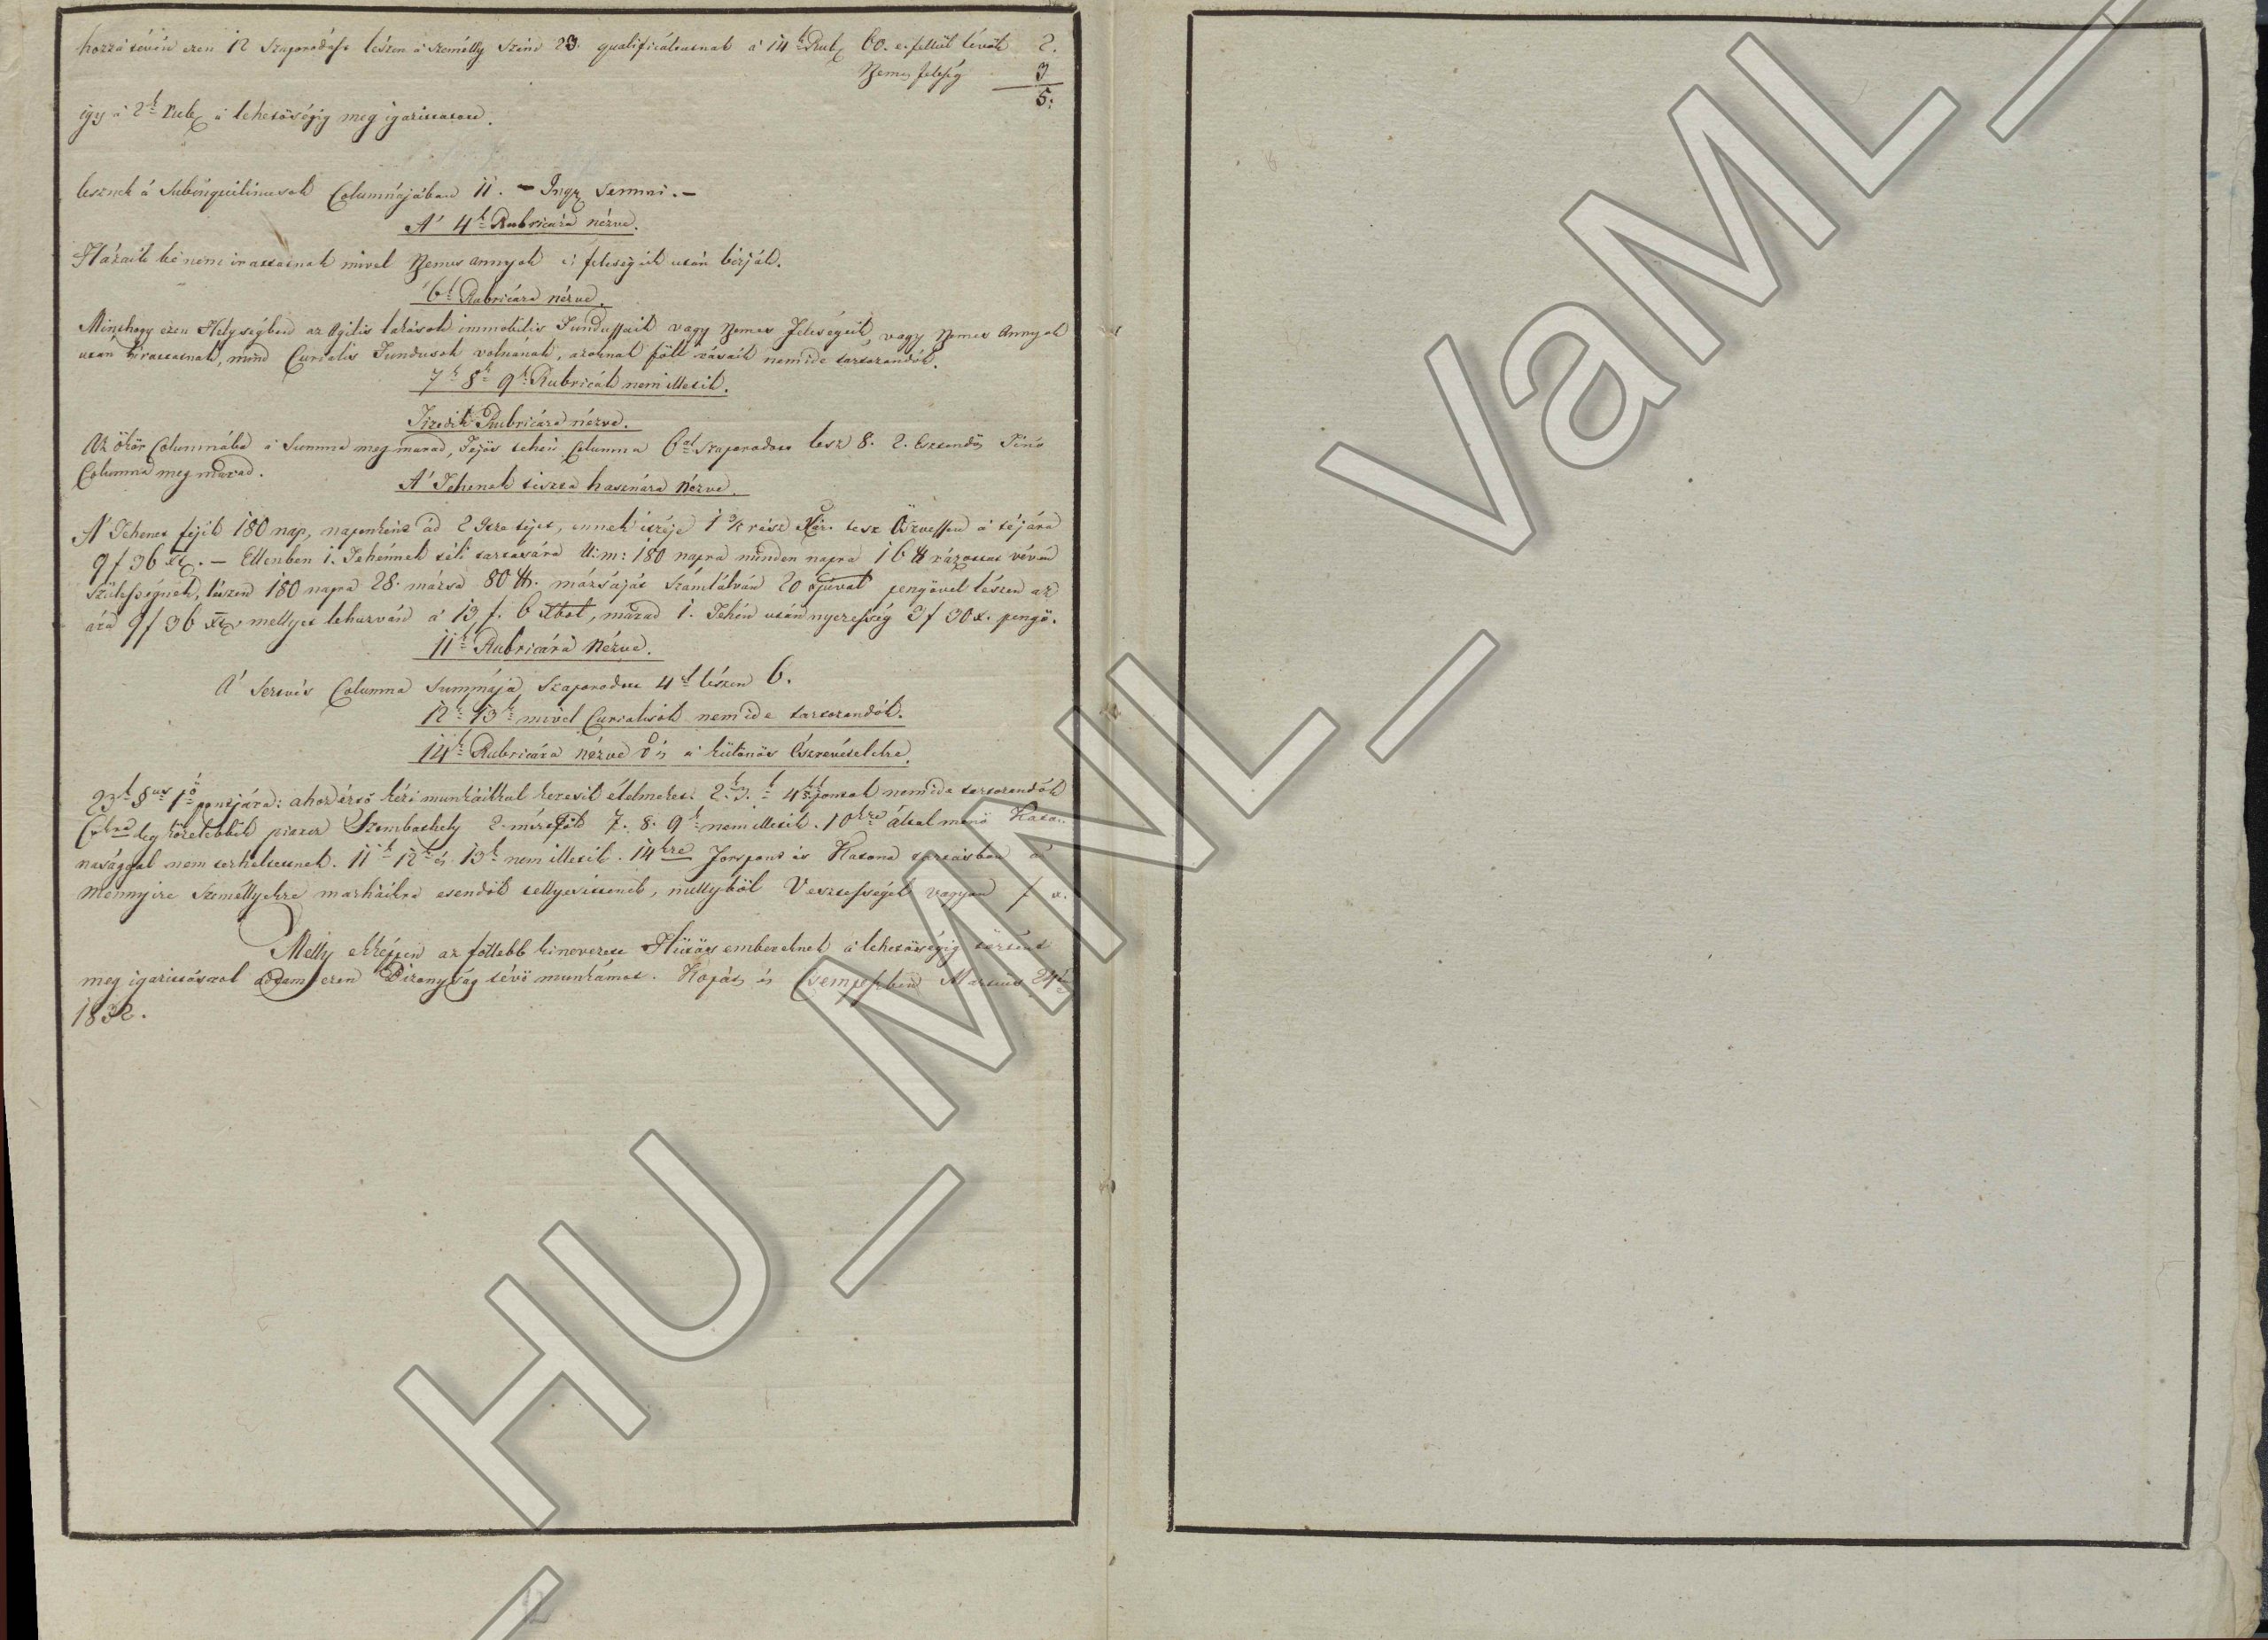 hozzá tévén ezen 12 Szaporodást lészen a' személly Szám 23. qualificáltatnak a' 14k Rub. 60. e. fellül lévők 2.
Nemes feleség 3
5.
így a' 2k Rub. a' lehetőségig meg igazíttatott.
lesznek a' Subinquilinusok Columnájában 11. – Ingr. semmi. –
A' 4k Rubricára nézve.
Házaik bé nem irattatnak mivel Nemes annyok és feleségeik után bírják.
6k Rubricára nézve.
Minthogy ezen Helységben az Agilis lakások immobilis Fundussaik vagy Nemes Feleségeik, vagy Nemes Annyok
után birattatnak, mind Curialis Fundusok volnának, azoknak föld rásaik nem ide tartozandók.
7k 8k 9k Rubricák nem illetik.
Tizedik Rubricára nézve.
Az ökör Columnába a' Summa megmarad, Fejős tehén Columna 6al Szaporodva lesz 8. 2. Esztendős Tinó
Columna meg marad.
A' Tehenek tiszta hasznára Nézve.
A' Tehenet fejik 180 nap, naponként ád 2 Itze tejet, ennek itzéje 1 3/5 rész Xár. tesz Öszvessen a' tejára
9 f 36 xr. – Ellenben 1. Tehénnek téli tartására u: m: 180 napra minden napra 16 ℔ rázottat vévén
szükségnek, lészen 180 napra 28. mázsa 80 ℔. mázsáját Számlálván 20 Xjával pengővel lészen az
ára 9 f 36 xr. mellyet lehuzván a' 13 f. 6 Xból, marad 1. Tehén után nyereség 3 f 30 x. pengő.
11k Rubricára Nézve.
A' Sertvés Columna Summája Szaporodva 4el lészen 6.
12k 13k mivel Curialisok nem ide tartozandók.
14k Rubricára nézve és a' különös Észrevételekre.
23k §us 1ő pontjára: ahoz értő kézi munkáikkal keresik élelmeket. 2. 3. k 4k pontok nem ide tartozandók
6kra leg közelebbik piacz Szombathely 2. mérföld 7. 8. 9k nem illetik. 10kre által menő Kato-
nasággal nem terheltetnek. 11k 12k és 13k nem illetik. 14kre Forspont és Katona tartásban a'
mennyire személlyekre marháikra esendőt tellyesittenek, mellyből Vesztességek vagyon f x.
Melly ekképpen az föllebb kinevezett Hütös embereknek a' lehetőségig történt
meg igazításról adtam ezen Bizonyság tévő munkámat. Kopáts és Csempeszben Martius 24én
1832.